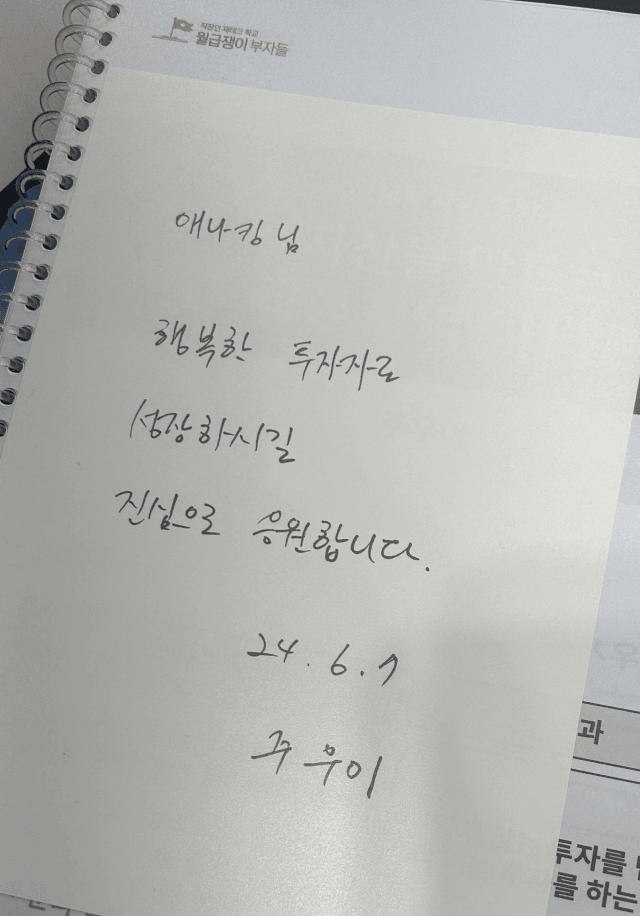 직장인 재테크 학교
월급쟁이 부자들
애나킹님
행복한 투자자로
성장하시길
진심으로 응원합니다.
24. 6. 7
주우이
과
투자를
를 하는